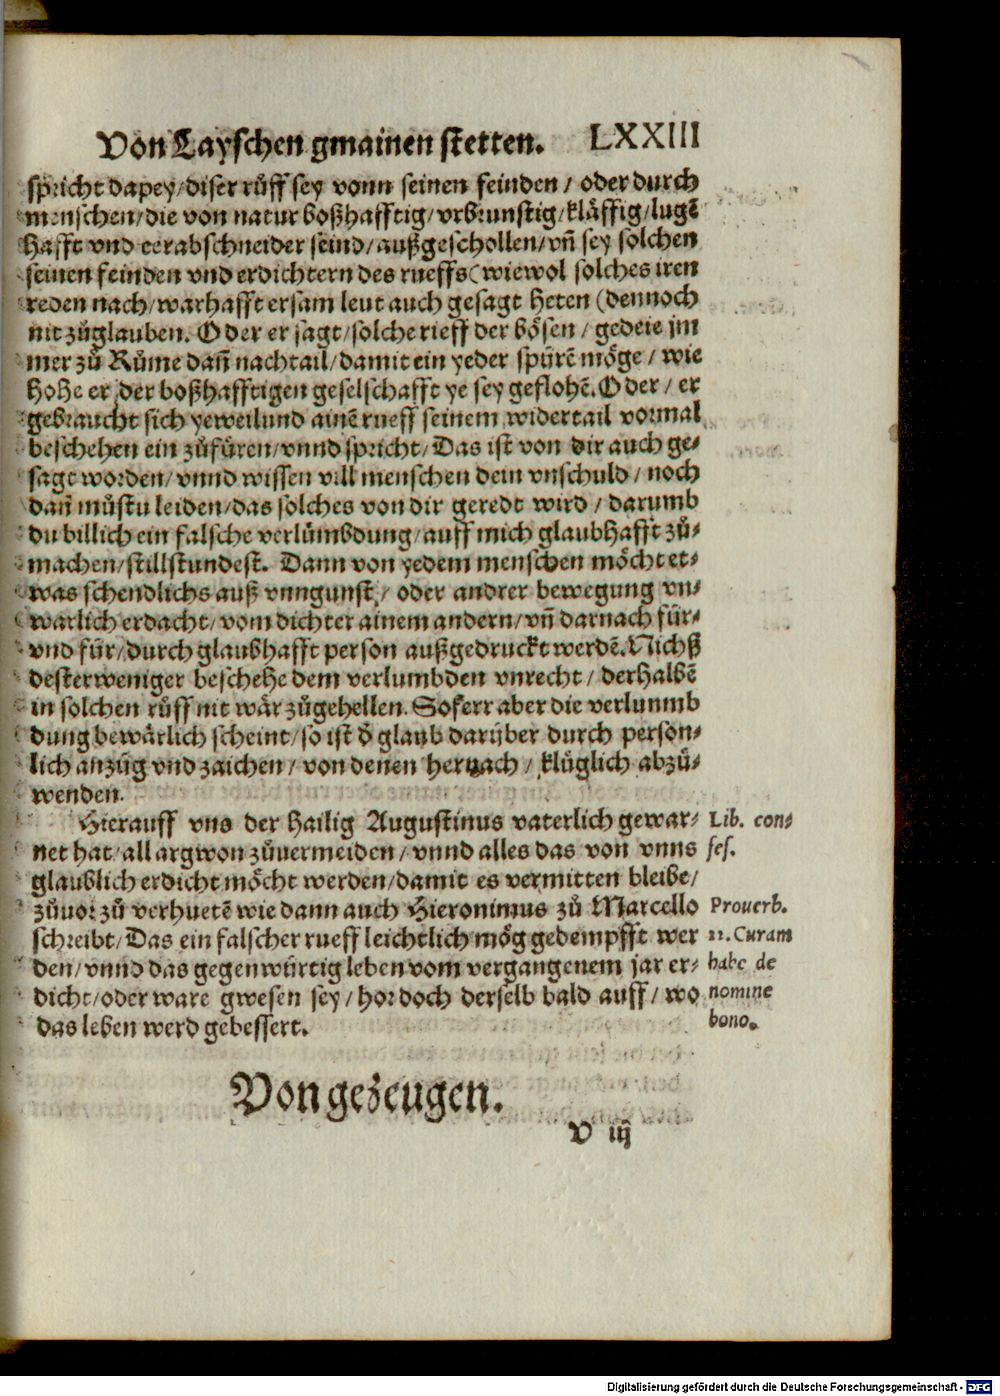 Von Layschen gmainen stetten. LXXIII
spricht dapey/diser růff sey vonn seinen feinden / oder durch
menschen/die von natur boßhafftig/vrbrunstig/kläffig/lugẽ
hafft vnd eerabschneider seind/außgeschollen/vñ sey solchen
seinen feinden vnd erdichtern des rueffs (wiewol solches iren
reden nach/warhafft ersam leut auch gesagt heten (dennoch
nit zůglauben. Oder er sagt/solche rieff der bösen / gedeie jm
mer zů Růme dañ nachtail/damit ein yeder spürẽ möge / wie
hohe er der boßhafftigen geselschafft ye sey geflohẽ. Oder / er
gebraucht sich yeweil vnd ainẽ rueff seinem widertail vormal
beschehen ein zůfüren/vnnd spricht/Das ist von dir auch ge⸗
sagt worden/vnnd wissen vill menschen dein vnschuld / noch
dañ můstu leiden/das solches von dir geredt wird / darumb
du billich ein falsche verlümbdung/auff mich glaubhafft zů⸗
machen/stillstundest. Dann von yedem menschen möcht et⸗
was schendlichs auß vnngunst / oder andrer bewegung vn⸗
warlich erdacht/vom dichter ainem andern/vñ darnach für⸗
vnd für/durch glaubhafft person außgedruckt werdẽ. Nichß
desterweniger beschehe dem verlumbden vnrecht / derhalbẽ
in solchen růff nit wär zůgehellen. Soferr aber die verlunmb
dung bewärlich scheint/so ist d̕ glaub darüber durch person⸗
lich anzüg vnd zaichen / von denen hernach / klüglich abzů⸗
wenden.
Hierauff vns der hailig Augustinus vaterlich gewar⸗
net hat/all argwon zůuermeiden / vnnd alles das von vnns
glaublich erdicht möcht werden/damit es vermitten bleibe/
zůuor zů verhuetẽ wie dann auch Hieronimus zů Marcello
schreibt/Das ein falscher rueff leichtlich mög gedempfft wer
den/vnnd das gegenwürtig leben vom vergangenem jar er⸗
dicht/oder ware gwesen sey / hor doch derselb bald auff / wo
das leben werd gebessert.
Lib. con⸗
fes.
Prouerb.
22. Curam
habe de
nomine
bono.
Von gezeugen.
V iij
Digitalisierung gefördert durch die Deutsche Forschungsgemeinschaft - DFG